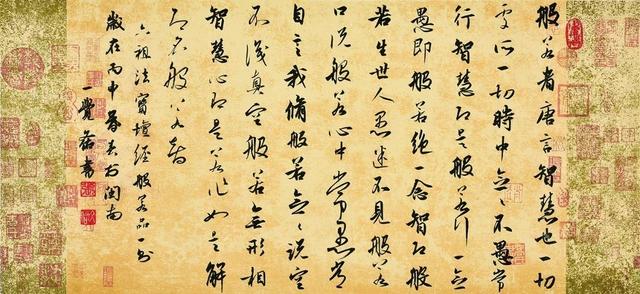 般若者唐言智慧也一切
處所一切時中念念不愚常
行智慧即是般若行一念
愚即般若絕一念智即般
若生世人愚迷不見般若
口說般若心中常愚常
自言我脩般若念念說空
不識真空般若無形相
智慧心即是若作如是解
即名般若智
六祖法寶壇經般若品一則
歲在丙申春於閩南
一覺書